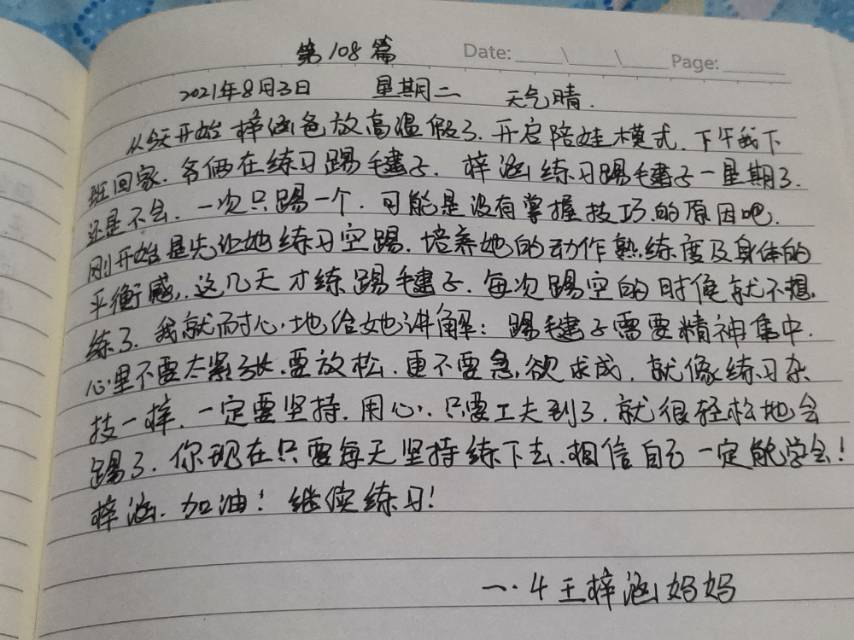 第108篇 Date: Page:
2021年8月3日 星期二 天气晴.
从今天开始梓涵爸放高温假了.开启陪娃模式.下午我下
班回家.爷俩在练习踢毽子.梓涵练习踢毽子一星期了.
还是不会.一次只踢一个.可能是没有掌握技巧的原因吧.
刚开始是先让她练习空踢.培养她的动作熟练度及身体的
平衡感,这几天才练踢毽子.每次踢空的时候就不想
练了.我就耐心地给她讲解:踢毽子需要精神集中.
心里不要太紧张.要放松.更不要急欲求成.就像练习杂
技一样.一定要坚持.用心.只要工夫到了.就很轻松地会
踢了.你现在只要每天坚持练下去.相信自己一定能学会!
梓涵.加油!继续练习!
一.4王梓涵妈妈